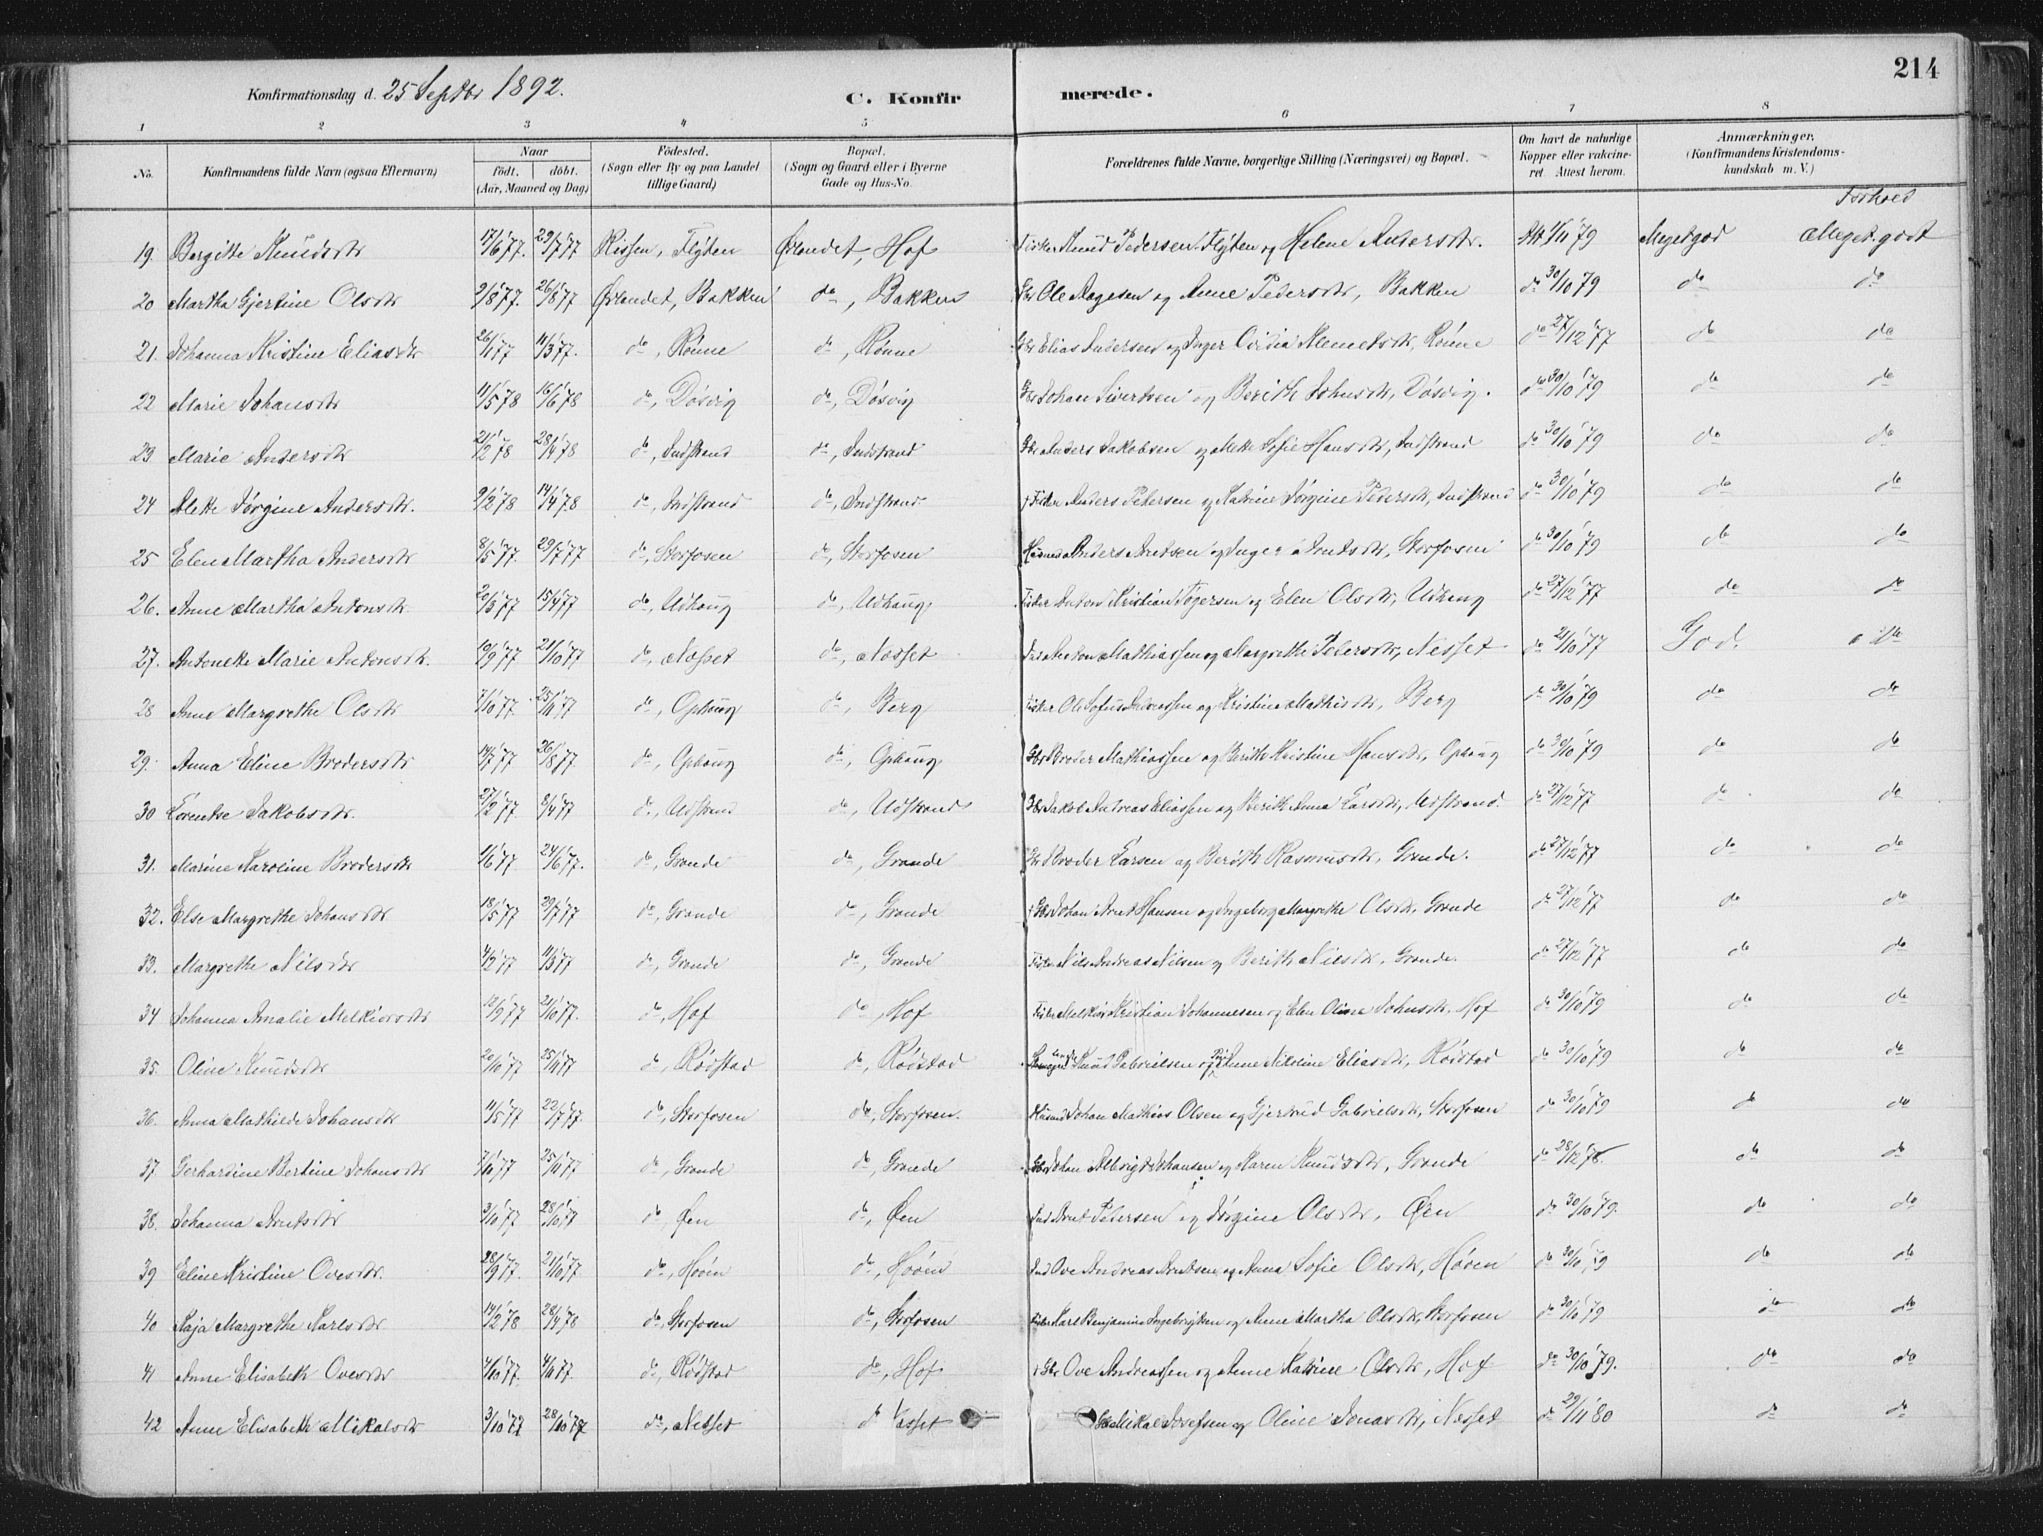 214
Konfirmationsdag d. 25 Septbr 1892. C. Konfirmerede.
1 2 3 4 5 6 7 8
No. Konfirmandens fulde Navn (ogsaa Efternavn) Naar födt. döbt. (Aar, Maaned og Dag) Födested. (Sogn eller By og paa Landet tillige Gaard) Bopæl. (Sogn og Gaard eller i Byerne Gade og Hus-No. Forældrenes fulde Navne, borgerlige Stilling (Næringsvei) og Bopæl. Om havt de naturlige Kopper eller vakcineret. Attest herom. Anmærkninger. (Konfirmandens Kristendomskundskab m. V.)
Forhold
19. Bergitte Knudsdtr 17/6 77. 29/7 77 Rissen, Flyten Ørlandet, Hof Fisker Knud Pedersen Flyten og Helene Andersdtr. 79 Meget god Meget godt
20 Martha Gjertine Olsdtr 9/8 77. 26/8 77 Ørlandet, Bakken do, Bakken Ole Aagesen og Anne Pedersdtr, Bakken do 30/10 79 do do
21. Johanna Kristine Eliasdtr 26/1 77 11/3 77. do, Rønne do, Rønne Elias Andersen og Inger Klemetsdtr, Rønne do 27/12 77 do do
22 Marie Johansdtr 11/5 78 16/6 78 do, Døsvig do, Døsvig Johan Sivertsen og Berith Johnsdtr, Døsvig. do 30/10 79 do do
23 Marie Andersdtr 21/2 78 28/4 78 do, Indstrand do, Indstrand Anders Jakobsen og Mette Sofie Hansdtr, Indstrand do 30/10 79 do do
24 Alette Jørgine Andersdtr. 9/2 78 14/4 78 do, Indstrand do, Indstrand Fisker Anders Petersen og Katrine Jørgine Pedersdtr, Indstrand do 30/10 79 do do
25 Elen Martha Andersdtr 8/5 77. 29/7 77 do, Storfosen do, Storfosen Anders Arntsen og Inger Arntsdtr, Storfosen do 30/10 79 do do
26. Anne Martha Antonsdtr 20/3 77 15/4 77 do, Udhaug do, Udhaug Fisker Anton Kristian Togersen og Elen Olsdtr, Udhaug do 27/12 77 do do
27. Antonette Marie Antonsdtr. 19/9 77 21/10 77 do, Næsset do, Næsset Anton Mathiassen og Margrethe Pedersdtr, Nesset do 21/10 77 God. do
28 Anne Margrethe Olsdtr 7/10 77. 25/11 77 do, Ophaug do, Berg Fisker Ole Sofus Andreassen og Kristine Mathisdtr, Berg do 30/10 79 do do
29. Anna Eline Brodersdtr 14/7 77 26/8 77. do, Ophaug do, Ophaug Gbr Broder Mathiassen og Berith Kristine Hansdtr, Ophaug do 30/10 79 do do
30 Lorentse Jakobsdtr. 27/2 77 8/4 77 do, Udstrand do, Udstrand Gbr Jakob Andreas Eliassen og Berith Anna Larsdtr, Udstrand. do 27/12 77 do do
31. Marine Karoline Brodersdtr 11/6 77 24/6 77. do, Grande do, Grande Gbr Broder Larsen og Berith Rasmusdtr, Grande. do 27/12 77 do do
32. Else Margrethe Johansdtr 18/5 77 29/7 77 do, Grande do, Grande Gbr Johan Arnt Hansen og Ingeborg Margrethe Olsdtr, Grande do 27/12 77 do do
33. Margrethe Nilsdtr 4/2 77 11/3 77 do, Grande do, Grande Fisker Nils Andreas Nilsen og Berith Nilsdtr, Grande. do 27/12 77 do do
34 Johanna Amalie Melkiorsdtr 12/9 77 21/10 77. do, Hof do, Hof Fisker Melkior Kristian Johannesen og Elen Oline Johnsdtr, Hof do 30/10 79 do do
35. Oline Knudsdtr 20/10 77 25/11 77 do, Rødstad do, Rødstad Knud Gabrielsen og Anne Nikoline Eliasdtr, Rødstad do 30/10 79 do do
36. Anna Mathilde Johansdtr 11/5 77 22/7 77. do, Storfosen do, Storfosen. Johan Mathias Olsen og Gjertrud Gabrielsdtr, Storfosen do 30/10 79 do do
37. Gerhardine Bertine Johansdtr 7/10 77 25/11 77 do, Grande do, Grande Johan Johansen og Karen Knudsdtr, Grande do 28/12 78. do do
38. Johanna Arntsdtr 3/10 77 28/10 77 do, Øen do, Øen Arnt Petersen og Jørgine Olsdtr, Øen do 30/10 79. do do
39 Eline Kristine Ovesdtr. 28/9 77. 21/10 77 do, Hovin do, Hovin Ove Andreas Arntsen og Anna Sofie Olsdtr, Hoven do 30/10 79 do do
40 Kaja Margrethe Karlsdtr 14/2 78 28/4 78 do, Storfosen do, Storfosen Karl Benjamin Ingebrigtsen og Anne Martha Olsdtr, Storfosen do 30/10 79 do do
41 Anne Elisabeth Ovesdtr 4/10 77. 4/11 77. do, Rødstad do, Hof Gbr Ove Andreassen og Anne Katrine Olsdtr, Hof do 30/10 79. do do
42 Anne Elisabeth Mikalsdtr 3/10 77 28/10 77 do, Nesset do Næsset Mikal Josefsen og Oline Jonasdtr, Nesset do 29/11 80 do do